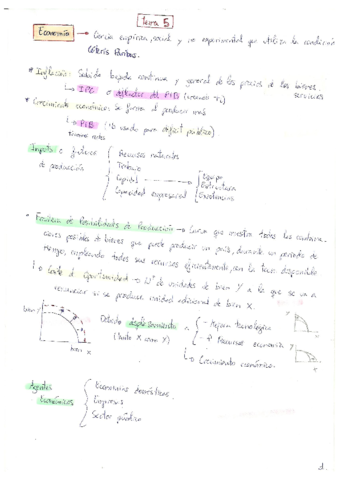 Tema 5
Economía → Ciencia empírica, social y no experimental que utiliza la condición
Céteris Paribus.
* Inflación: Subida rápida continua y general de los precios de los bienes.
servicios
↳ IPC o deflactor del PIB
* Crecimiento económico: se forma al producir más
↳ PIB (% usado para déficit público)
Inputs o factores
de producción
Recursos naturales
Trabajo
Capital →
Equipo
Estructura
Existencias
Capacidad empresarial
* Frontera de Posibilidades de Producción → Curva que muestra todas las combina-
ciones posibles de bienes que puede producir un país, durante un periodo de
tiempo, empleando todos sus recursos eficientemente, con la tecno. disponible
↳ Coste de oportunidad → Nº de unidades de bien Y a la que se va a
renunciar si se produce unidad adicional de bien X.
bien Y
bien X
Debido desplazamiento a
(tanto X como Y)
- Mejora tecnológica
- Recursos economía
↳ Crecimiento económico.
Agentes
Económicos
Economías domésticas.
Empresas
Sector público